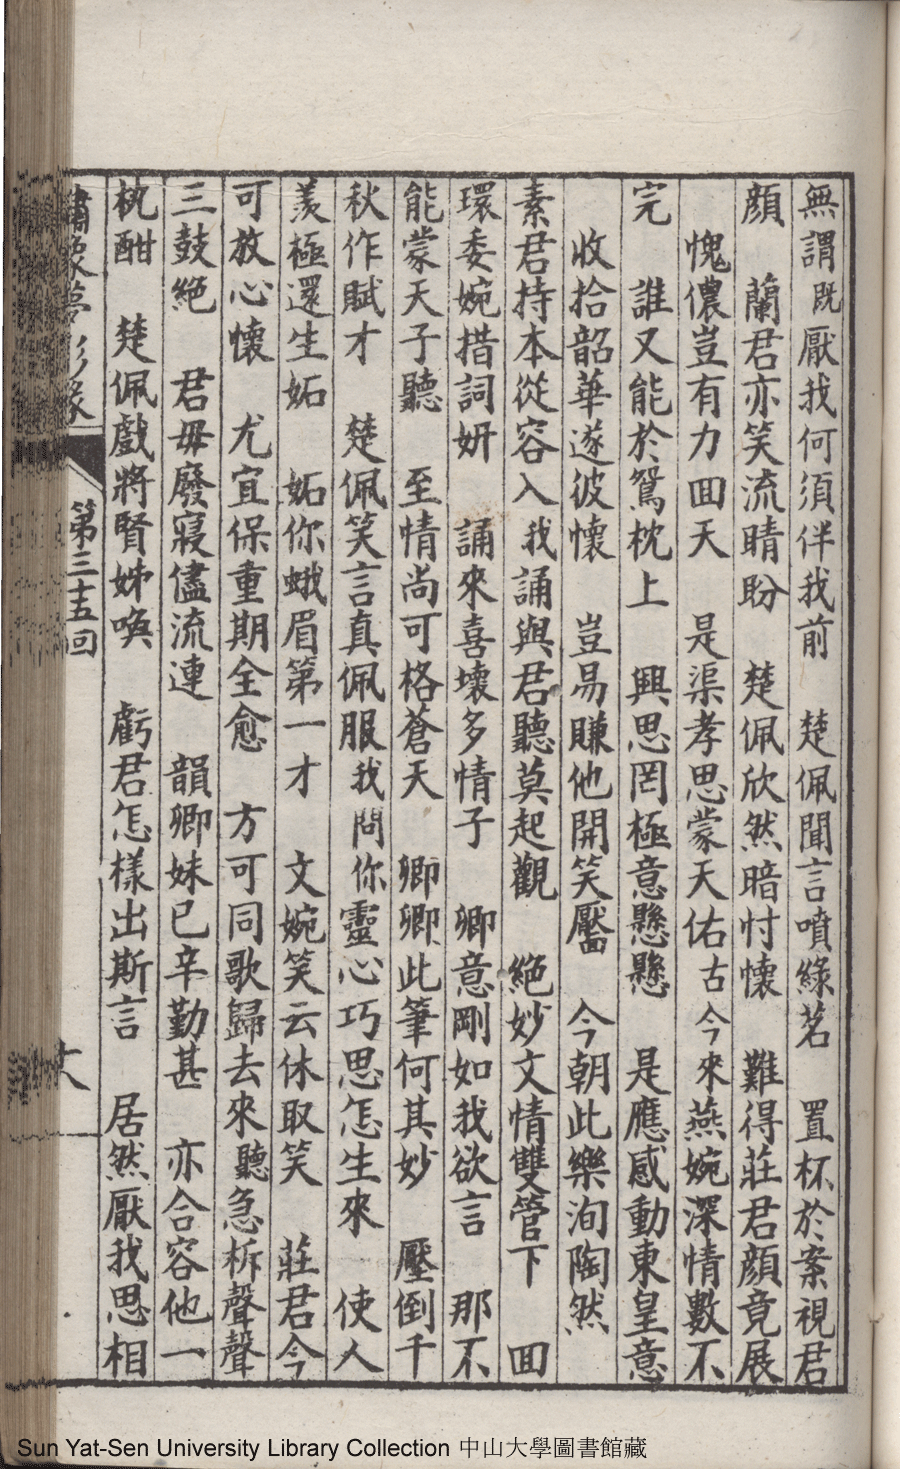 無謂既厭我何須伴我前　楚佩聞言噴綠茗　置杯於案視君
顏　蘭君亦笑流睛盼　楚佩欣然暗忖懷　難得莊君顏竟展
愧儂豈有力回天　是渠孝思蒙天佑古今來燕婉深情數不
完　誰又能於鴛枕上　興思罔極意懸懸　是應感動東皇意
收拾韶華遂彼懷　豈易賺他開笑靨　今朝此樂洵陶然
素君持本從容入我誦與君聽莫起觀　絕妙文情雙管下　回
環委婉措詞妍　誦來喜壞多情子　卿意剛如我欲言　那不
能蒙天子聽　至情尚可格蒼天　卿卿此筆何其妙　壓倒千
秋作賦才　楚佩笑言真佩服我問你靈心巧思怎生來　使人
羨極還生妬　妬你蛾眉第一才　文婉笑云休取笑　莊君今
可放心懷　尤宜保重期全愈　方可同歌歸去來聽急柝聲聲
三鼓絕　君毋廢寢儘流連　韻卿妹已辛勤甚　亦合容他一
枕酣　楚佩戲將賢姊喚　虧君怎樣出斯言　居然厭我思相
夢影緣
第三十五回
Sun Yat-Sen University Library Collection 中山大學圖書館藏